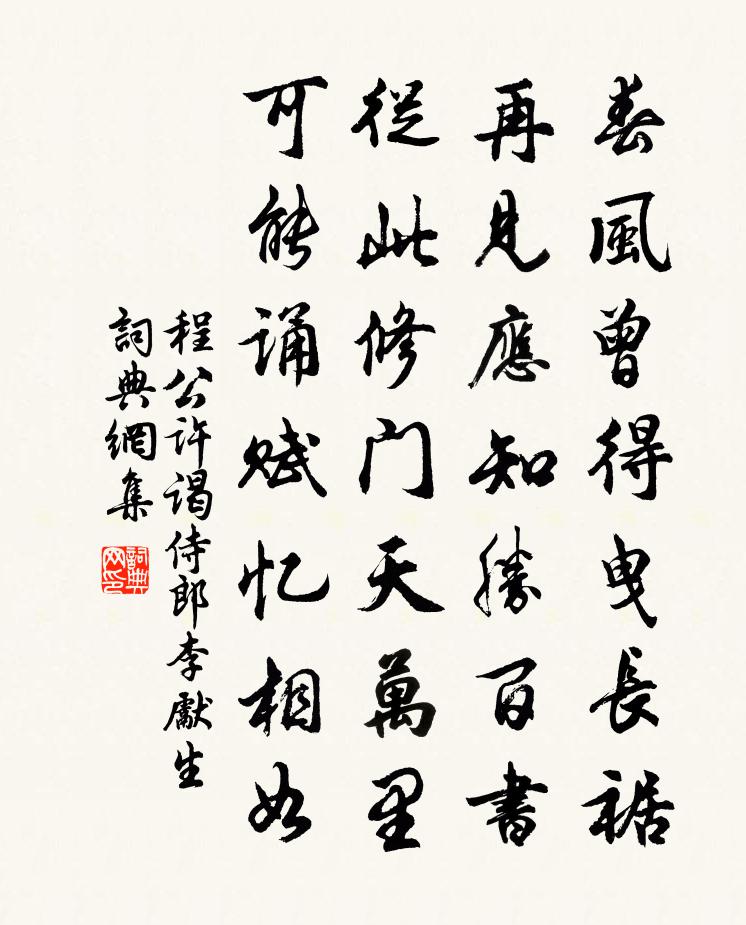 春風曾得曳長裾
再見應知勝百書
從此修門天萬里
可能诵赋忆相如
程公许谒侍郎李獻生
詞典網集
詞典网印